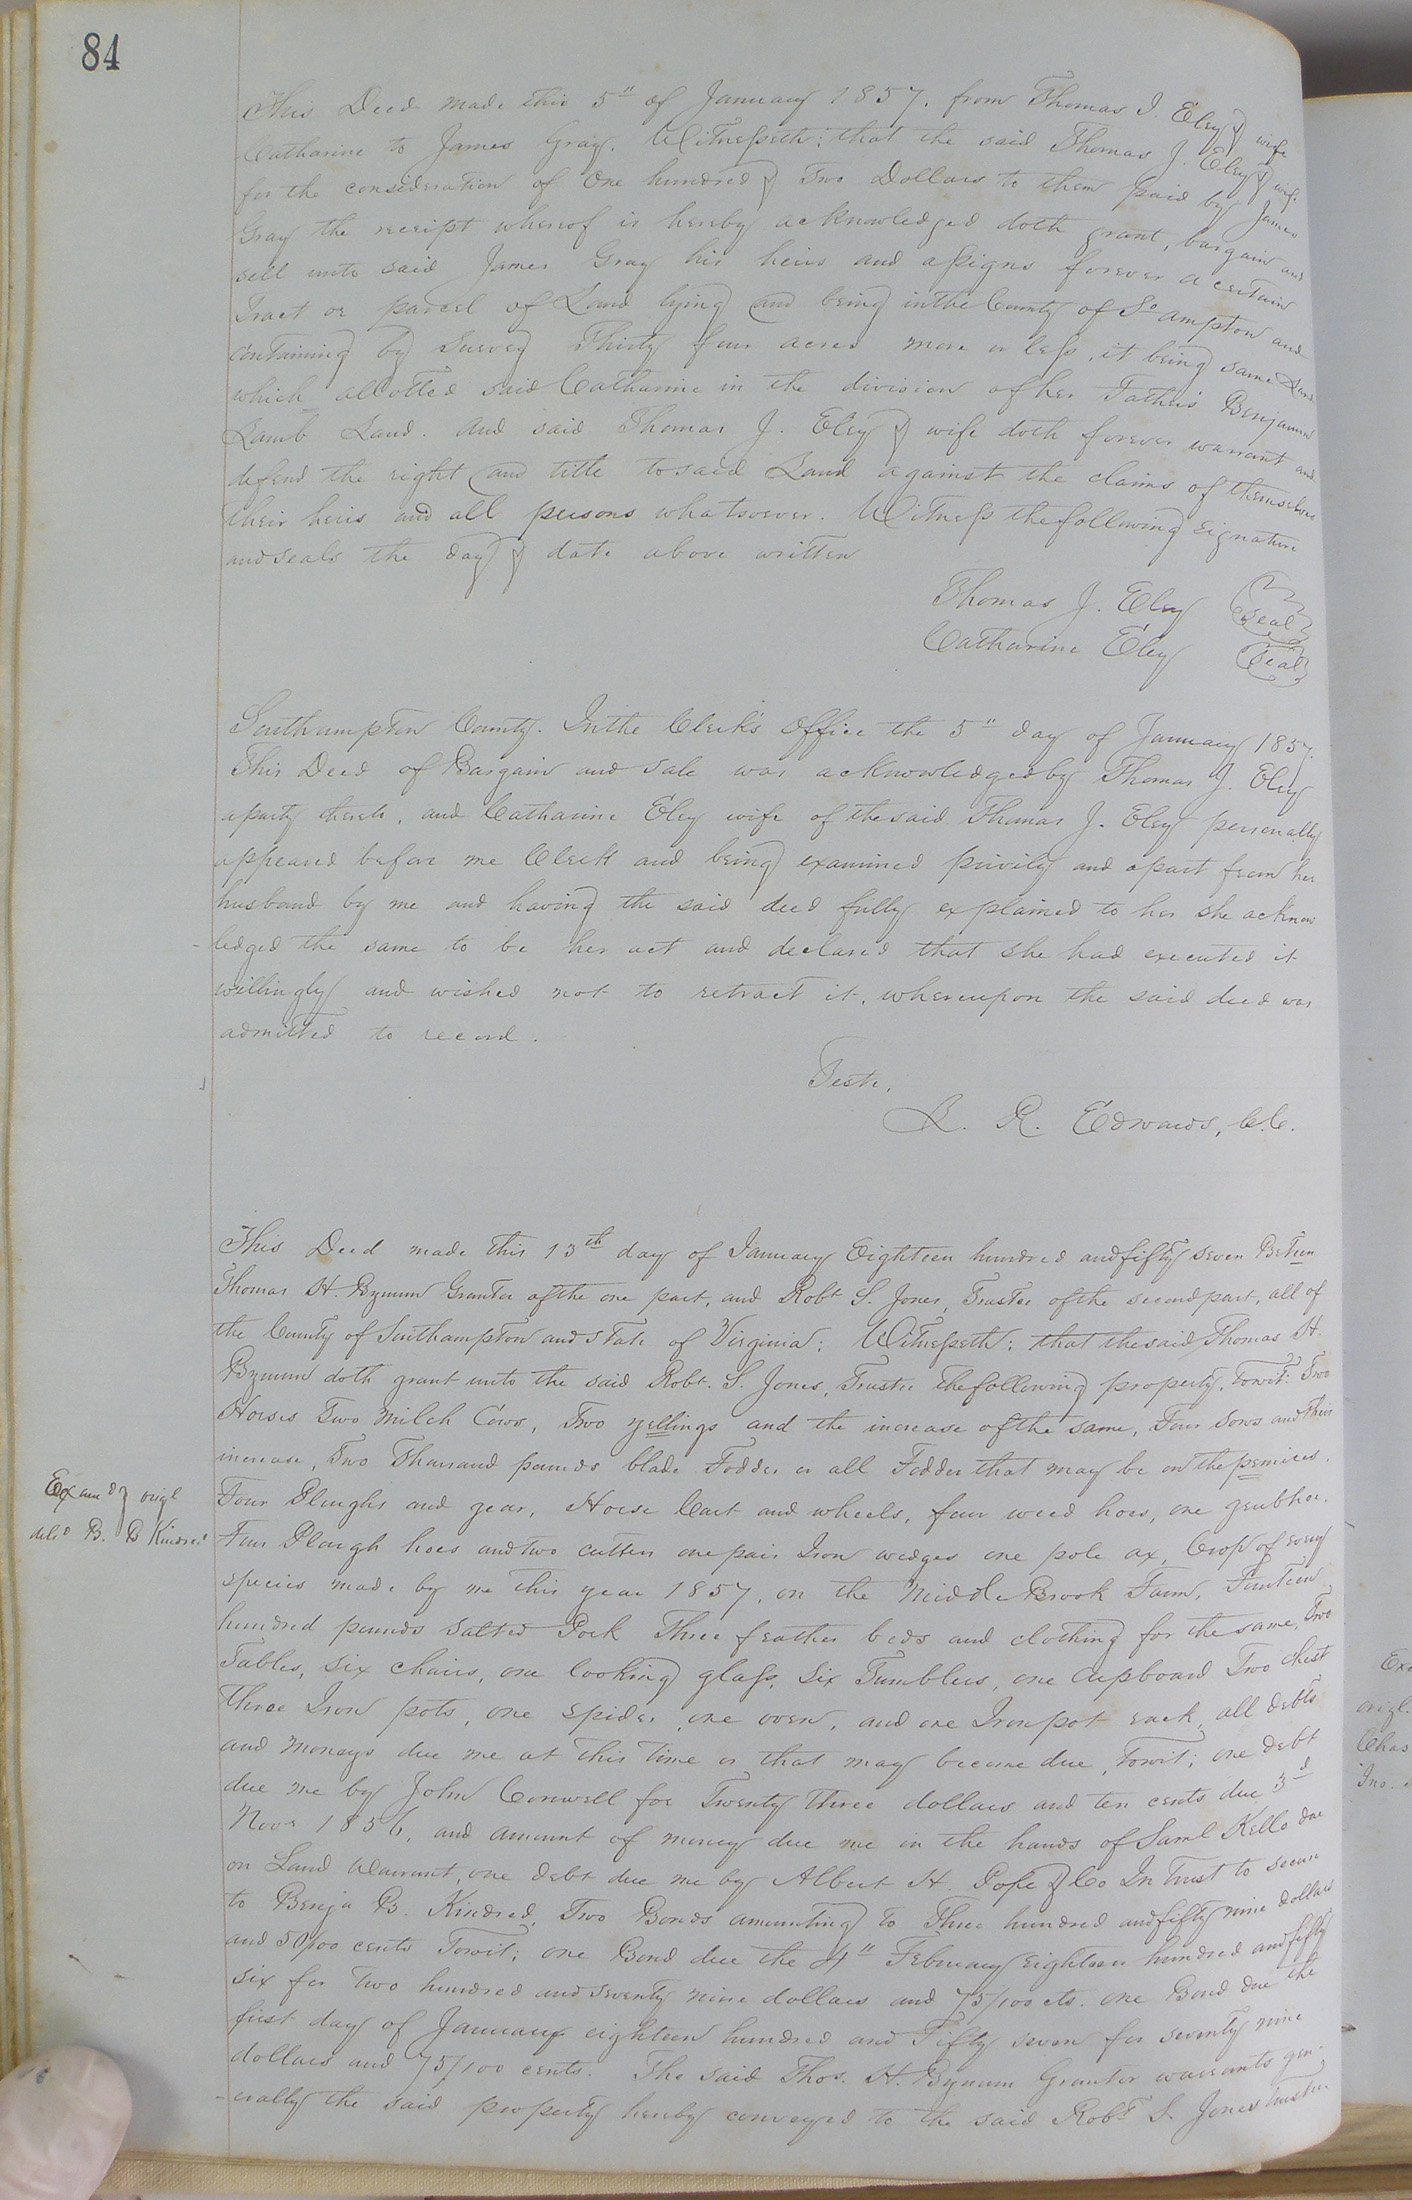 84
This Deed made this 5" of January 1857, from Thomas J. Eley & wife
Catharine to James Gray. Witnesseth: that the said Thomas J. Eley & wife
for the consideration of One hundred & Two Dollars to them paid by James
Gray the receipt whereof is hereby acknowledged doth grant, bargain and
sell unto said James Gray his heirs and assigns forever a certain
Tract or parcel of Land lying and being in the County of So ampton and
Containing by Survey Thirty four acres more or less, it being same Land
which allotted said Catharine in the division of her Father's Benjamin
Lamb Land. And said Thomas J. Eley & wife doth forever warrant and
defend the right and title to said Land against the claims of themselves
their heirs and all persons whatsoever. Witness the following signature
and seals the day & date above written
Thomas J. Eley Seal
Catharine Eley Seal
Southampton County. In the Clerk's Office the 5" day of January 1857.
This Deed of Bargain and Sale was acknowledged by Thomas J. Eley
a party thereto, and Catharine Eley wife of the said Thomas J. Eley personally
appeared before me Clerk and being examined privily and apart from her
husband by me and having the said deed fully explained to her she acknow
-ledged the same to be her act and declared that she had executed it
willingly and wished not to retract it, whereupon the said deed was
admitted to record.
Teste,
L. R. Edwards, C.C.
This Deed made this 13th day of January Eighteen hundred and fifty seven Between
Thomas H. Bynum Grantor of the one part, and Robt S. Jones, Trustee of the second part, all of
the County of Southampton and State of Virginia; Witnesseth: that the said Thomas H.
Bynum doth grant unto the said Robt. S. Jones, Trustee the following property, Towit: Two
Horses Two Milch Cows, Two yellings and the increase of the same, Four Sows and their
increase, Two Thousand pounds blade Fodder or all Fodder that may be on the premices.
Four Ploughs and gear, Horse Cart and wheels, four weed hoes, one grubhoe.
Exam d & origl
deld B. B Kindred
Four Plough hoes and two cutters one pair Iron wedges one pole ax, Crop of every
species made by me this year 1857, on the Middle Brook Farm, Fourteen
hundred pounds salted Pork Three feather beds and clothing for the same, Two
Tables, six chairs, one looking glass, six Tumblers, one Cupboard Two chest
three Iron pots, one spider, one oven, and one Iron pot rack, all debts
and moneys due me at this time or that may become due, Towit; one debt
due me by John Conwell for Twenty three dollars and ten cents due 3d
Novr 1856, and amount of money due me in the hands of Saml Kello due
on Land Warrant, one debt due me by Albert H. Pope & Co In Trust to secure
to Benja B. Kindred, Two Bonds amounting to Three hundred and fifty nine dollars
and 50/100 cents Towit; one Bond due the 4" February eighteen hundred and fifty
six for two hundred and seventy nine dollars and 75/100 cts. one Bond due the
first day of January eighteen hundred and Fifty seven for seventy nine
dollars and 75/100 cents. The said Thos. H. Bynum Grantor warrants gen-
-erally the said property hereby conveyed to the said Robt S. Jones Trustee
origl.
Chas
Jno.